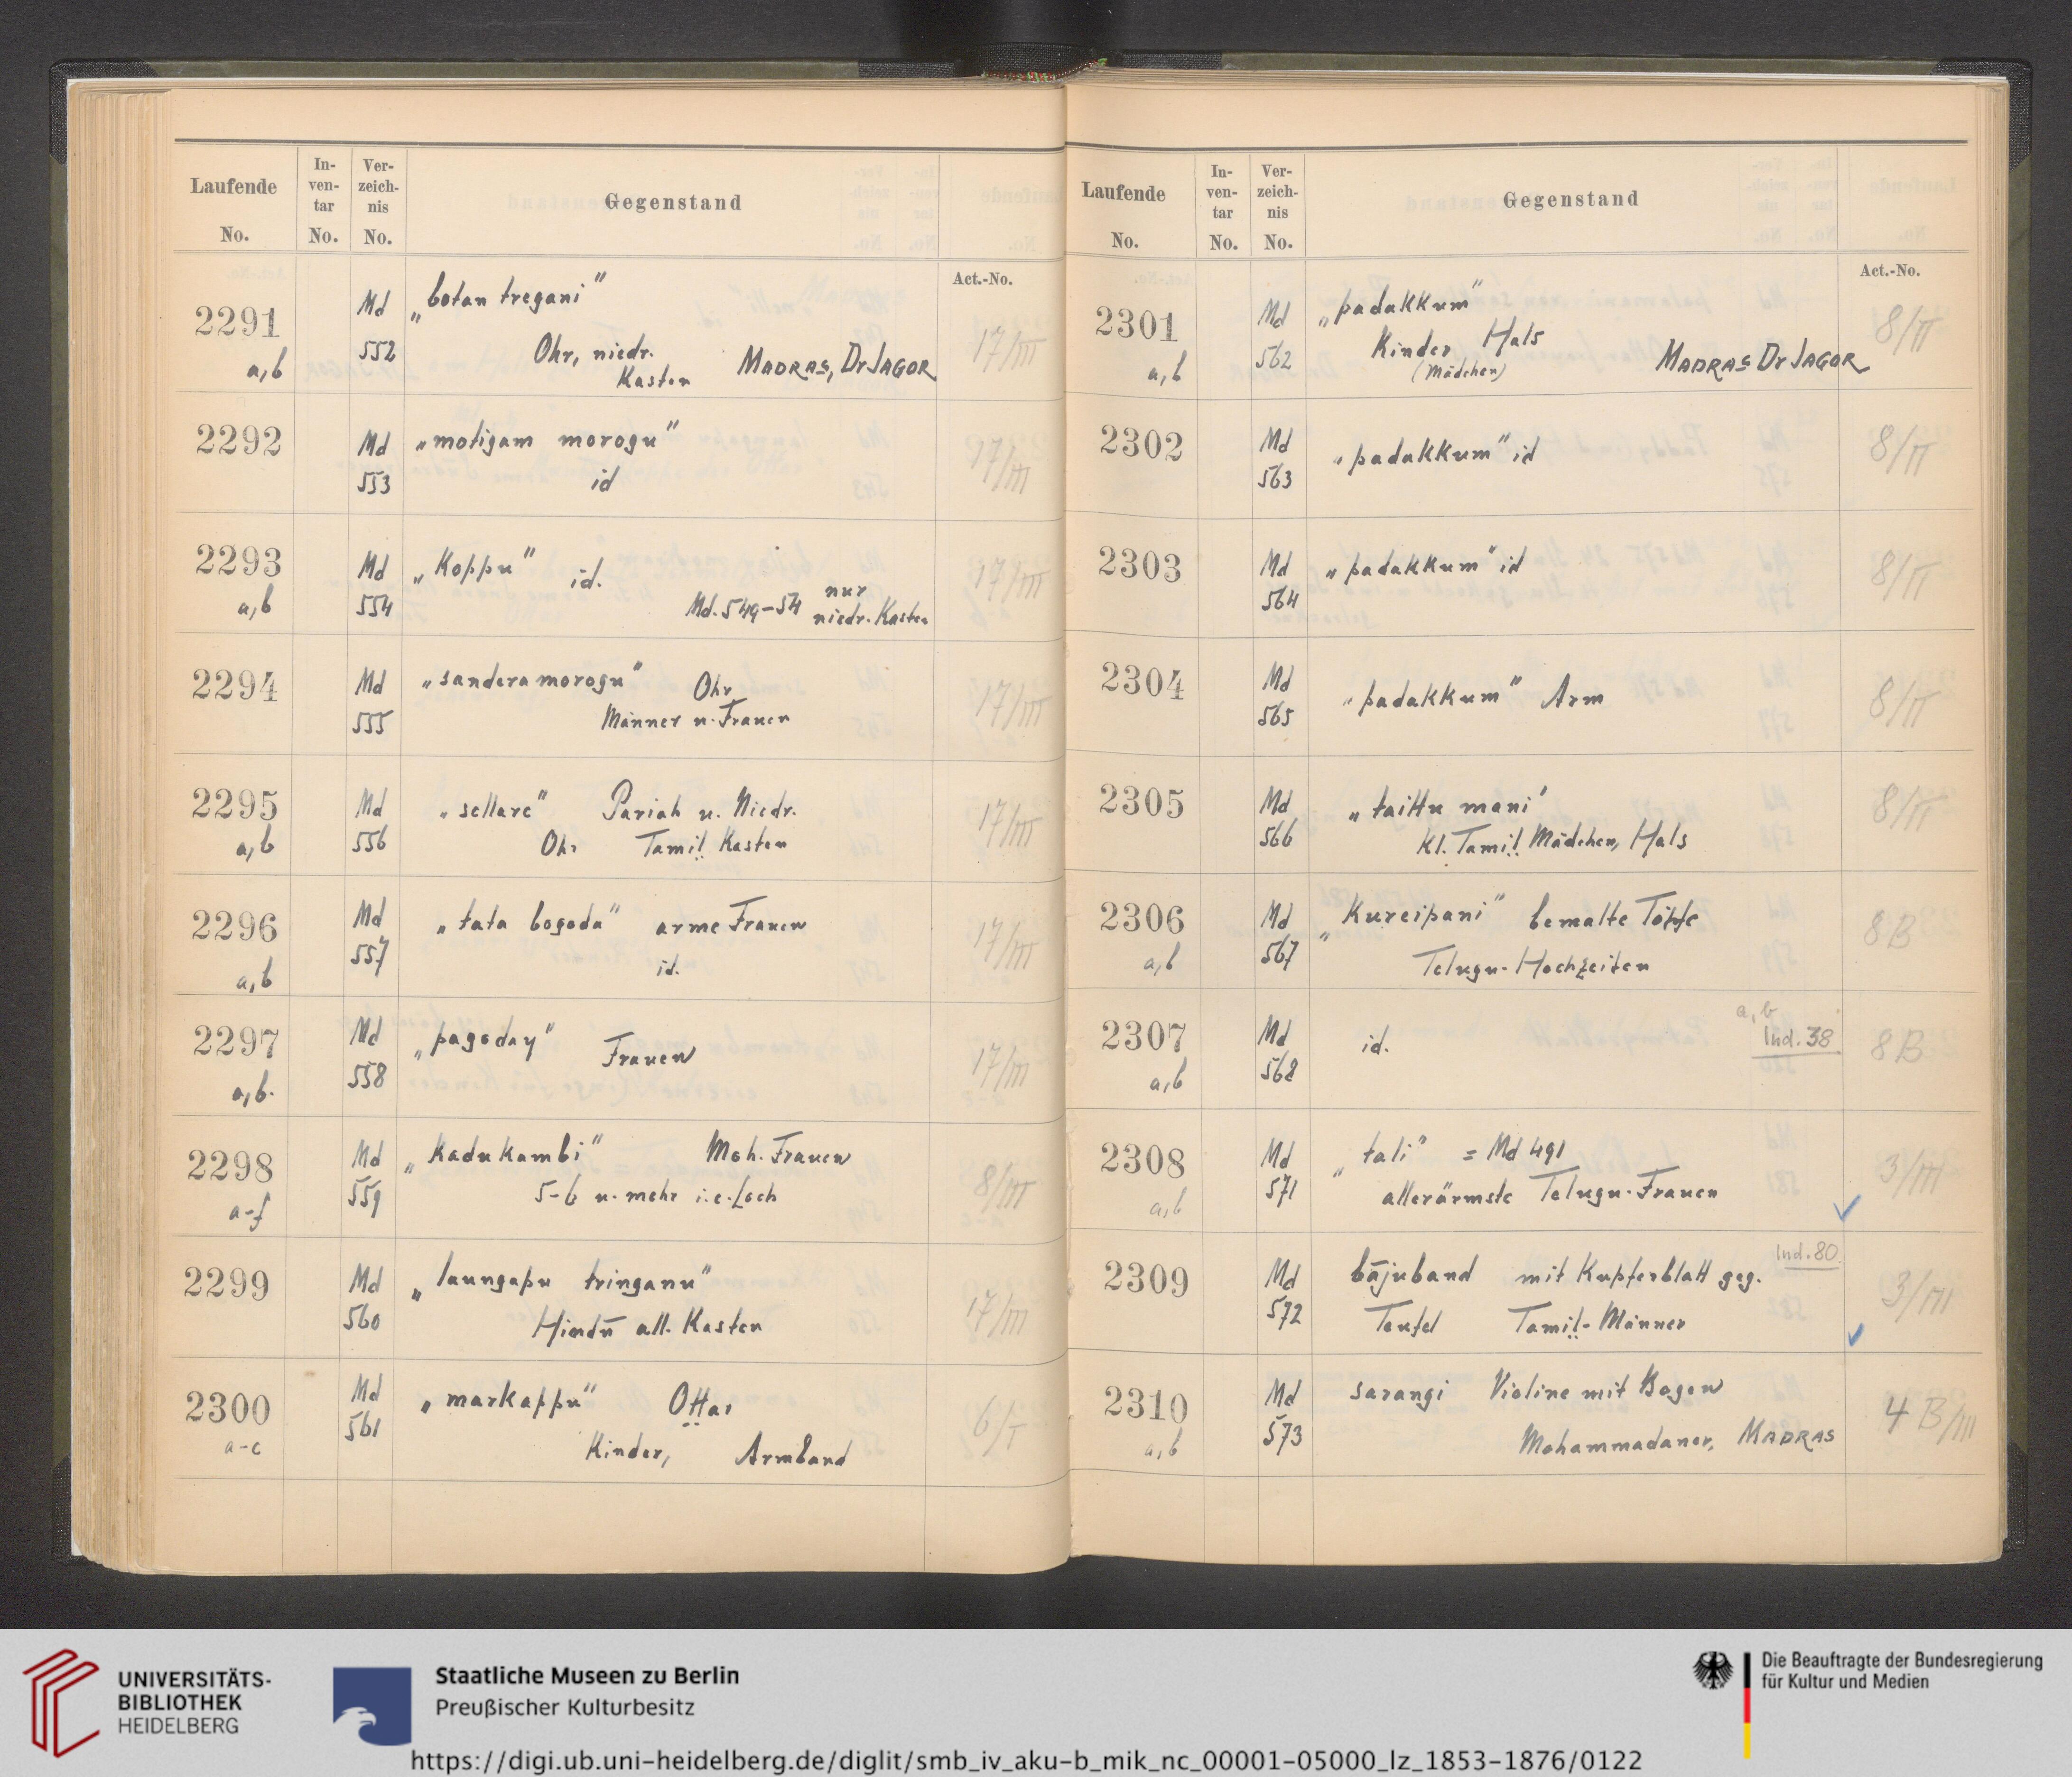 Laufende No.
In-ven-tar No.
Ver-zeich-nis No.
Gegenstand
Act.-No.
2291 a,b Md 552 „botan tregani"
Ohr, niedr. Kasten MADRAS, Dr JAGOR 17/III
2292 Md 553 „motigam morogu"
id 17/III
2293 a,b Md 554 „Koppu" id.
Md. 549-54 nur niedr. Kasten 17/III
2294 Md 555 „sandera morogu" Ohr
Männer u. Frauen 17/III
2295 a,b Md 556 „sellare" Pariah u. Niedr.
Ohr Tamiḷ Kasten 17/III
2296 a,b Md 557 „tata bogoda" arme Frauen
id. 17/III
2297 a,b. Md 558 „pagoday" Frauen 17/III
2298 a-f Md 559 „Kadukambi" Moh. Frauen
5-6 u. mehr i. e. Loch 8/III
2299 Md 560 „laungapu tringanu"
Hindū all. Kasten 17/III
2300 a-c Md 561 „markappu" Oṭṭar
Kinder, Armband 6/I
Laufende No.
In-ven-tar No.
Ver-zeich-nis No.
Gegenstand
Act.-No.
2301 a,b Md 562 „padakkum"
Kinder Hals
(Mädchen) MADRAS Dr JAGOR 8/II
2302 Md 563 „padakkum" id 8/II
2303 Md 564 „padakkum" id 8/II
2304 Md 565 „padakkum" Arm 8/II
2305 Md 566 „taittu mani"
Kl. Tamiḷ Mädchen, Hals 8/II
2306 a,b Md 567 „Kureipani" bemalte Töpfe
Telugu-Hochzeiten 8B
2307 a,b Md 568 id. a,b
Ind. 38 8B
2308 a,b Md 571 „tali" = Md 491
allerärmste Telugu-Frauen 3/III
2309 Md 572 bājuband mit Kupferblatt geg. Ind. 80
Teufel Tamiḷ-Männer 3/III
2310 a,b Md 573 sarangi Violine mit Bogen
Mohammadaner, MADRAS 4 B/III
UNIVERSITÄTS-
BIBLIOTHEK
HEIDELBERG
Staatliche Museen zu Berlin
Preußischer Kulturbesitz
Die Beauftragte der Bundesregierung
für Kultur und Medien
https://digi.ub.uni-heidelberg.de/diglit/smb_iv_aku-b_mik_nc_00001-05000_lz_1853-1876/0122